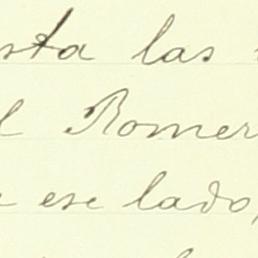 sta las
l Romer
ese lado,